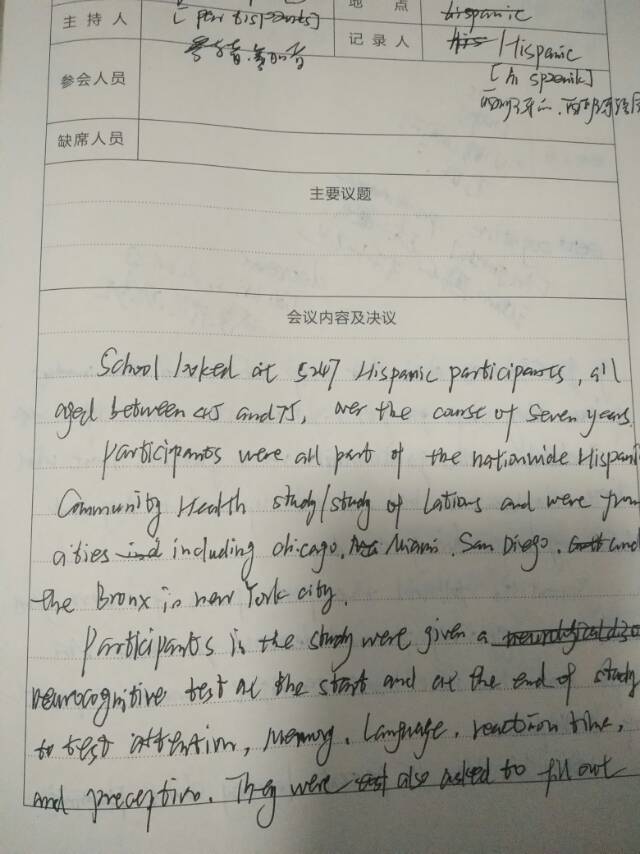 主持人 [ participants] 地点 hispanic
参与者.参加者 记录人 Hispanic
参会人员 [hɪ spænik]
西班牙的.西班牙语的
缺席人员
主要议题
会议内容及决议
School looked at 5247 Hispanic participants, all
aged between 45 and 75, over the course of Seven years.
Participants were all part of the nationwide Hispani
Community Health study/study of Lations and were from
cities including chicago, Miami, San Diego, and
the Bronx in new York city.
Participants in the study were given a
neurocognitive test at the start and at the end of study
to test attention, Memory, Language, reaction time,
and preceptive. They were also asked to fill out